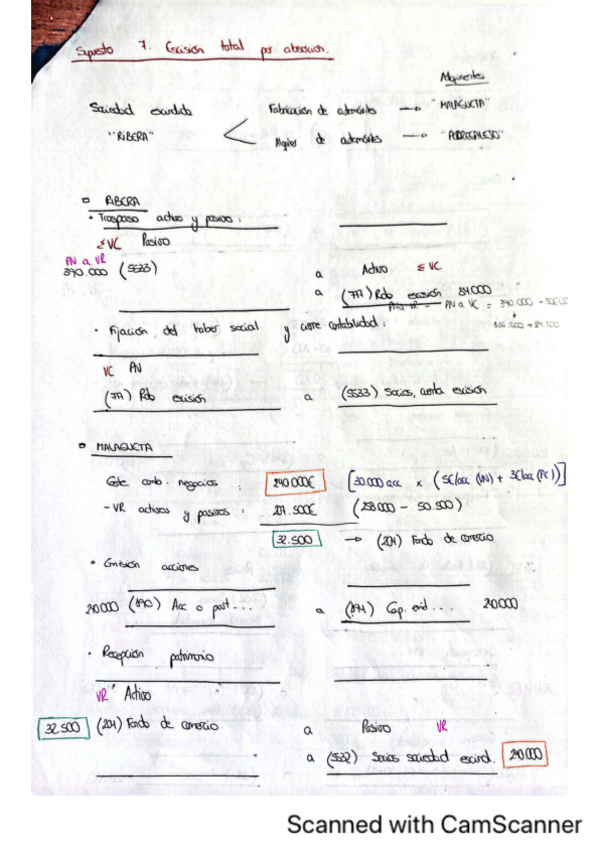 Supuesto 7. Escisión total por absorción.
Adquirentes
Sociedad escindida
"RIBERA"
Fabricación de automóviles → "MALAGUETA"
Alquiler de automóviles → "PEDREGALEJO"
RIBERA
• Traspaso activo y pasivo:
ΣVC Pasivo
PN a VR
390.000 (5533)
a Activo ΣVC
a (77) Rdo escisión 84.000
• Fijación del haber social y cierre contabilidad:
VC PN
(77) Rdo escisión a (5533) Socios, cuenta escisión
MALAGUETA
Coste comb. negocios: 240.000€ [30.000 acc x (5€/acc (VN) + 3€/acc (PE))]
- VR activos y pasivos: 207.500€ (258.000 - 50.500)
32.500 → (204) Fondo de comercio
• Emisión acciones
240000 (190) Acc o part... a (194) Cap. emit... 240000
• Recepción patrimonio
VR Activo
32.500 (204) Fondo de comercio
a Pasivo VR
a (5532) Socios sociedad escind. 240.000
Scanned with CamScanner